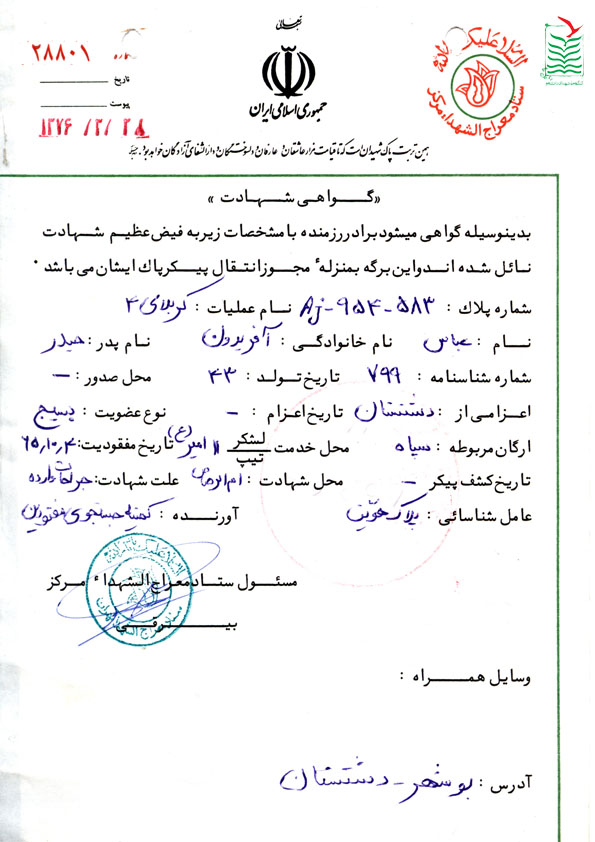 بسمه تعالی
شماره ۲۸۸۰۱
تاریخ
پیوست
۱۳۷۶ /۲/ ۲۸
جمهوری اسلامی ایران
السلام علیک یا ثارالله
ستاد معراج الشهداء مرکز
همین تربت پاک شهیدان است که تا قیامت مزار عاشقان و عارفان و دلسوختگان و دارالشفای آزادگان خواهد بود.
«گواهی شهادت »
بدینوسیله گواهی میشود برادر رزمنده با مشخصات زیر به فیض عظیم شهادت
نائل شده اند و این برگه بمنزلهٔ مجوز انتقال پیکر پاک ایشان می باشد .
شماره پلاک : Aj-۹۵۴-۵۸۳ نام عملیات : کربلای ۴
نام : عباس نام خانوادگی : آفریدون نام پدر : حیدر
شماره شناسنامه : ۷۹۹ تاریخ تولد : ۴۳ محل صدور : -
اعزامی از : دشتستان تاریخ اعزام : - نوع عضویت : بسیج
ارگان مربوطه : سپاه محل خدمت لشکر تیپ ۱۱ امیر (ع) تاریخ مفقودیت: ۶۵,۱۰,۴
تاریخ کشف پیکر - محل شهادت : ام الرصاص علت شهادت: جراحات وارده
عامل شناسائی : پلاک هویت آورنده : کمیته جستجوی مفقودین
مسئول ستاد معراج الشهداء مرکز
بیرقی
وسایل همراه :
آدرس : بوشهر - دشتستان